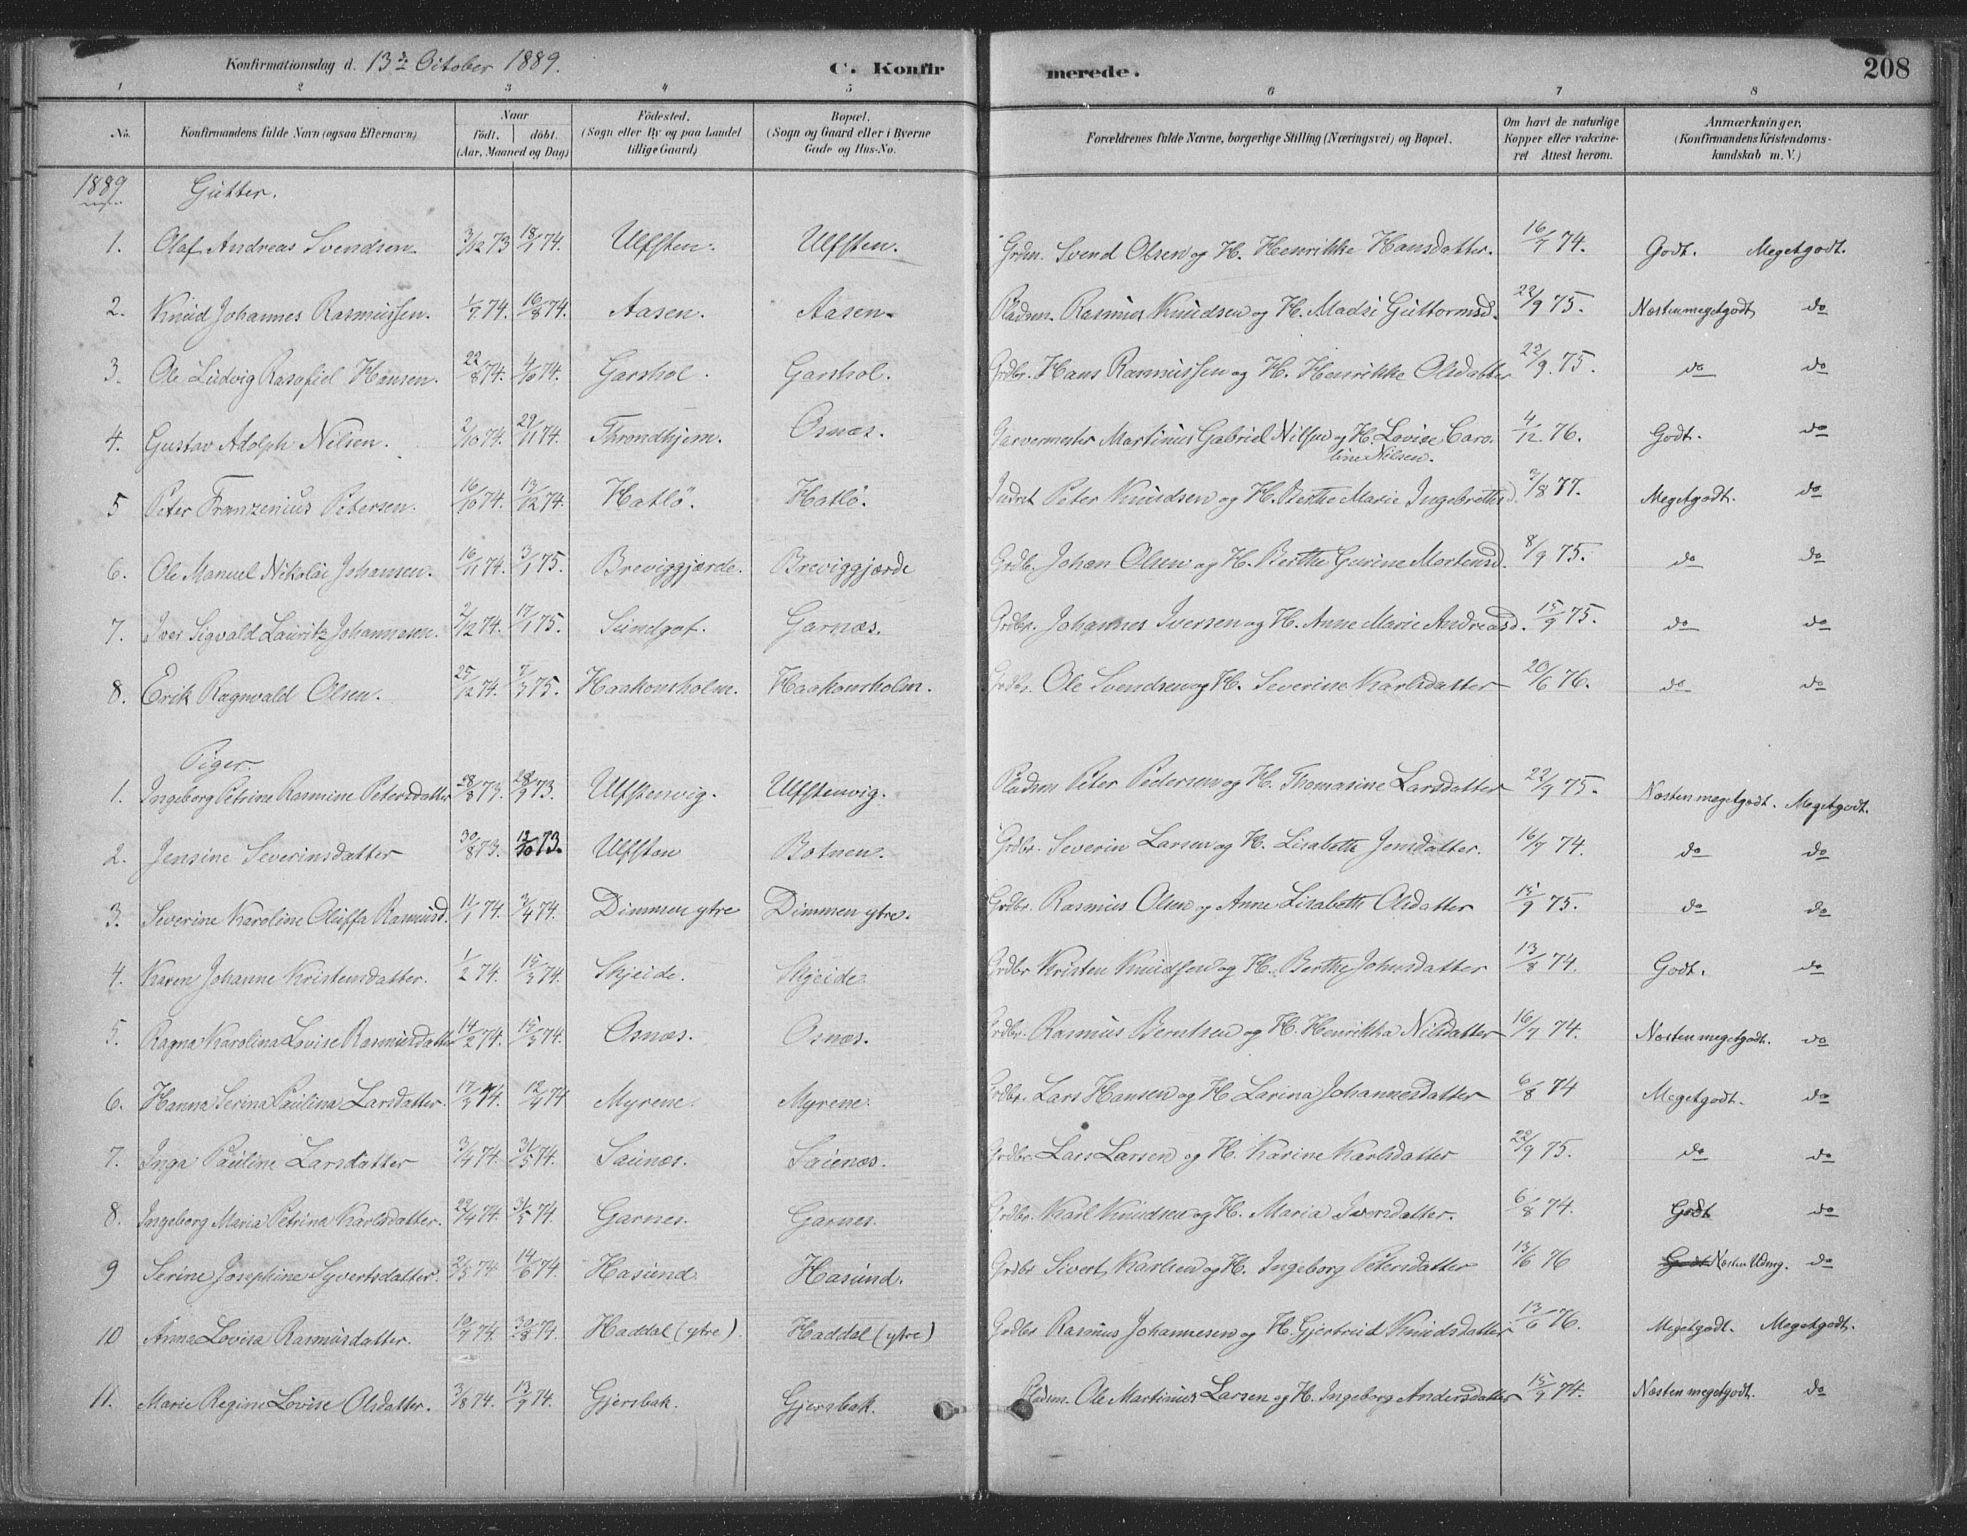 Konfirmationsdag d. 13de October 1889. C. Konfirmerede. 208
1 2 3 4 5 6 7 8
No. Konfirmandens fulde Navn (ogsaa Efternavn) Naar født. døbt. (Aar, Maaned og Dag) Fødested. (Sogn eller By og paa Landet tillige Gaard) Bopæl. (Sogn og Gaard eller i Byerne Gade og Hus-No. Forældrenes fulde Navne, borgerlige Stilling (Næringsvei) og Bopæl. Om havt de naturlige Kopper eller vakcineret Attest herom. Anmærkninger, (Konfirmandens Kristendomskundskab m. V.)
1889 Gutter.
1. Olaf Andreas Svendsen 3/12 73 18/1 74. Ulfsten. Ulfsten. Grdm. Svend Olsen og H. Henrikke Hansdatter. 16/7 74. Godt. Megetgodt.
2. Knud Johannes Rasmussen. 1/7 74. 16/8 74. Aasen. Aasen. Pladsm. Rasmus Knudsen og H. Madsi Guttormsd. 22/9 75. Næsten megetgodt do
3. Ole Ludvig Rasofiel Hansen. 22/8 74. 4/10 74. Garshol. Garshol. Grdbr. Hans Rasmussen og H. Henrikke Olsdatter 22/9. 75. do do
4. Gustav Adolph Nilsen. 2/10 74. 29/11 74. Throndhjem. Osnæs. Garvermester Martinus Gabriel Nilsen og H. Lovise Caroline Nilsen. 4/12 76. Godt. do
5 Peter Franzenius Petersen. 16/10 74. 13/12 74. Hatlø. Hatlø. Indret Peter Knudsen og H. Berthe Marie Ingebrethsd. 2/8 77. Megetgodt. do
6. Ole Manuel Nikolai Johansen. 16/11 74. 3/1 75. Breviggjærde. Breviggjærde Grdb. Johan Olsen og H. Berthe Gurine Mortensd. 8/9 75. do do
7. Iver Sigvald Lauritz Johannesen. 2/12 74. 17/1 75. Sundgot. Garnæs. Grdbr. Johannes Iversen og H. Anne Marie Andreasd. 15/9 75. do do
8. Erik Ragnvald Olsen. 25/12 74. 7/3 75. Haakonsholm. Haakonsholm. Grdbr. Ole Svendsen og H. Severine Karlsdatter 20/6 76. do do
Piger.
1. Ingeborg Petrine Rasmine Petersdatter 28/8 73. 28/9 73. Ulfstenvig. Ulfstenvig. Pladsm Peter Pedersen og H. Thomasine Larsdatter 22/9 75. Næsten megetgodt. Megetgodt.
2. Jensine Severinsdatter 30/8 73. 12/10 73. Ulfsten Botnen. Grdbr. Severin Larsen og H. Lisabeth Jensdatter. 16/7 74. do do
3. Severine Karoline Oluffa Rasmusd. 11/1 74. 3/4 74. Dimmen ytre Dimmen ytre. Grdbr. Rasmus Olsen og Anne Lisabeth Olsdatter 15/9 75. do do
4. Karen Johanne Kristensdatter. 1/2 74. 15/3 74. Skjeide. Skjeide Grdbr Kristen Knudsen og H. Berthe Johnsdatter 13/8 74. Godt. do
5. Ragna Karolina Lovise Rasmusdatter 14/2 74. 15/3 74. Osnæs. Osnæs. Grdbr. Rasmus Berntsen og H. Henrikka Nilsdatter 16/7 74. Næsten megetgodt. do
6. Hanna Serina Paulina Larsdatter. 17/3 74. 12/4 74 Myrene. Myrene. Grdbr. Lars Hansen og H. Larina Johannesdatter 6/8 74 Megetgodt. do
7. Inga Pauline Larsdatter 3/4 74. 31/5 74. Saunæs. Saunæs. Grdbr. Lars Larsen og H. Karine Karlsdatter 22/9 75. do do
8. Ingeborg Maria Petrina Karlsdatter. 22/4 74. 31/5 74. Garnes. Garnes. Grdbr. Karl Knudsen og H. Maria Iversdatter. 6/8 74. Godt do
9 Serine Josephine Syvertsdatter. 2/5 74 14/6 74. Hasund. Hasund. Grdbr Sivert Karlsen og H. Ingeborg Petersdatter 13/6 76 Godt Næsten Udmg. do
10 Anna Lovisa Rasmusdatter. 10/7 74. 30/8 74. Haddal (ytre). Haddal (ytre) Grdbr Rasmus Johannesen og H. Gjertrud Knudsdatter 13/6 76. Megetgodt. Megetgodt.
11. Marie Regine Lovise Olsdatter. 3/8 74. 13/9 74. Gjersbak. Gjersbak. Pladsm. Ole Martinus Larsen og H. Ingeborg Andersdatter 15/9 74. Næsten megetgodt. do